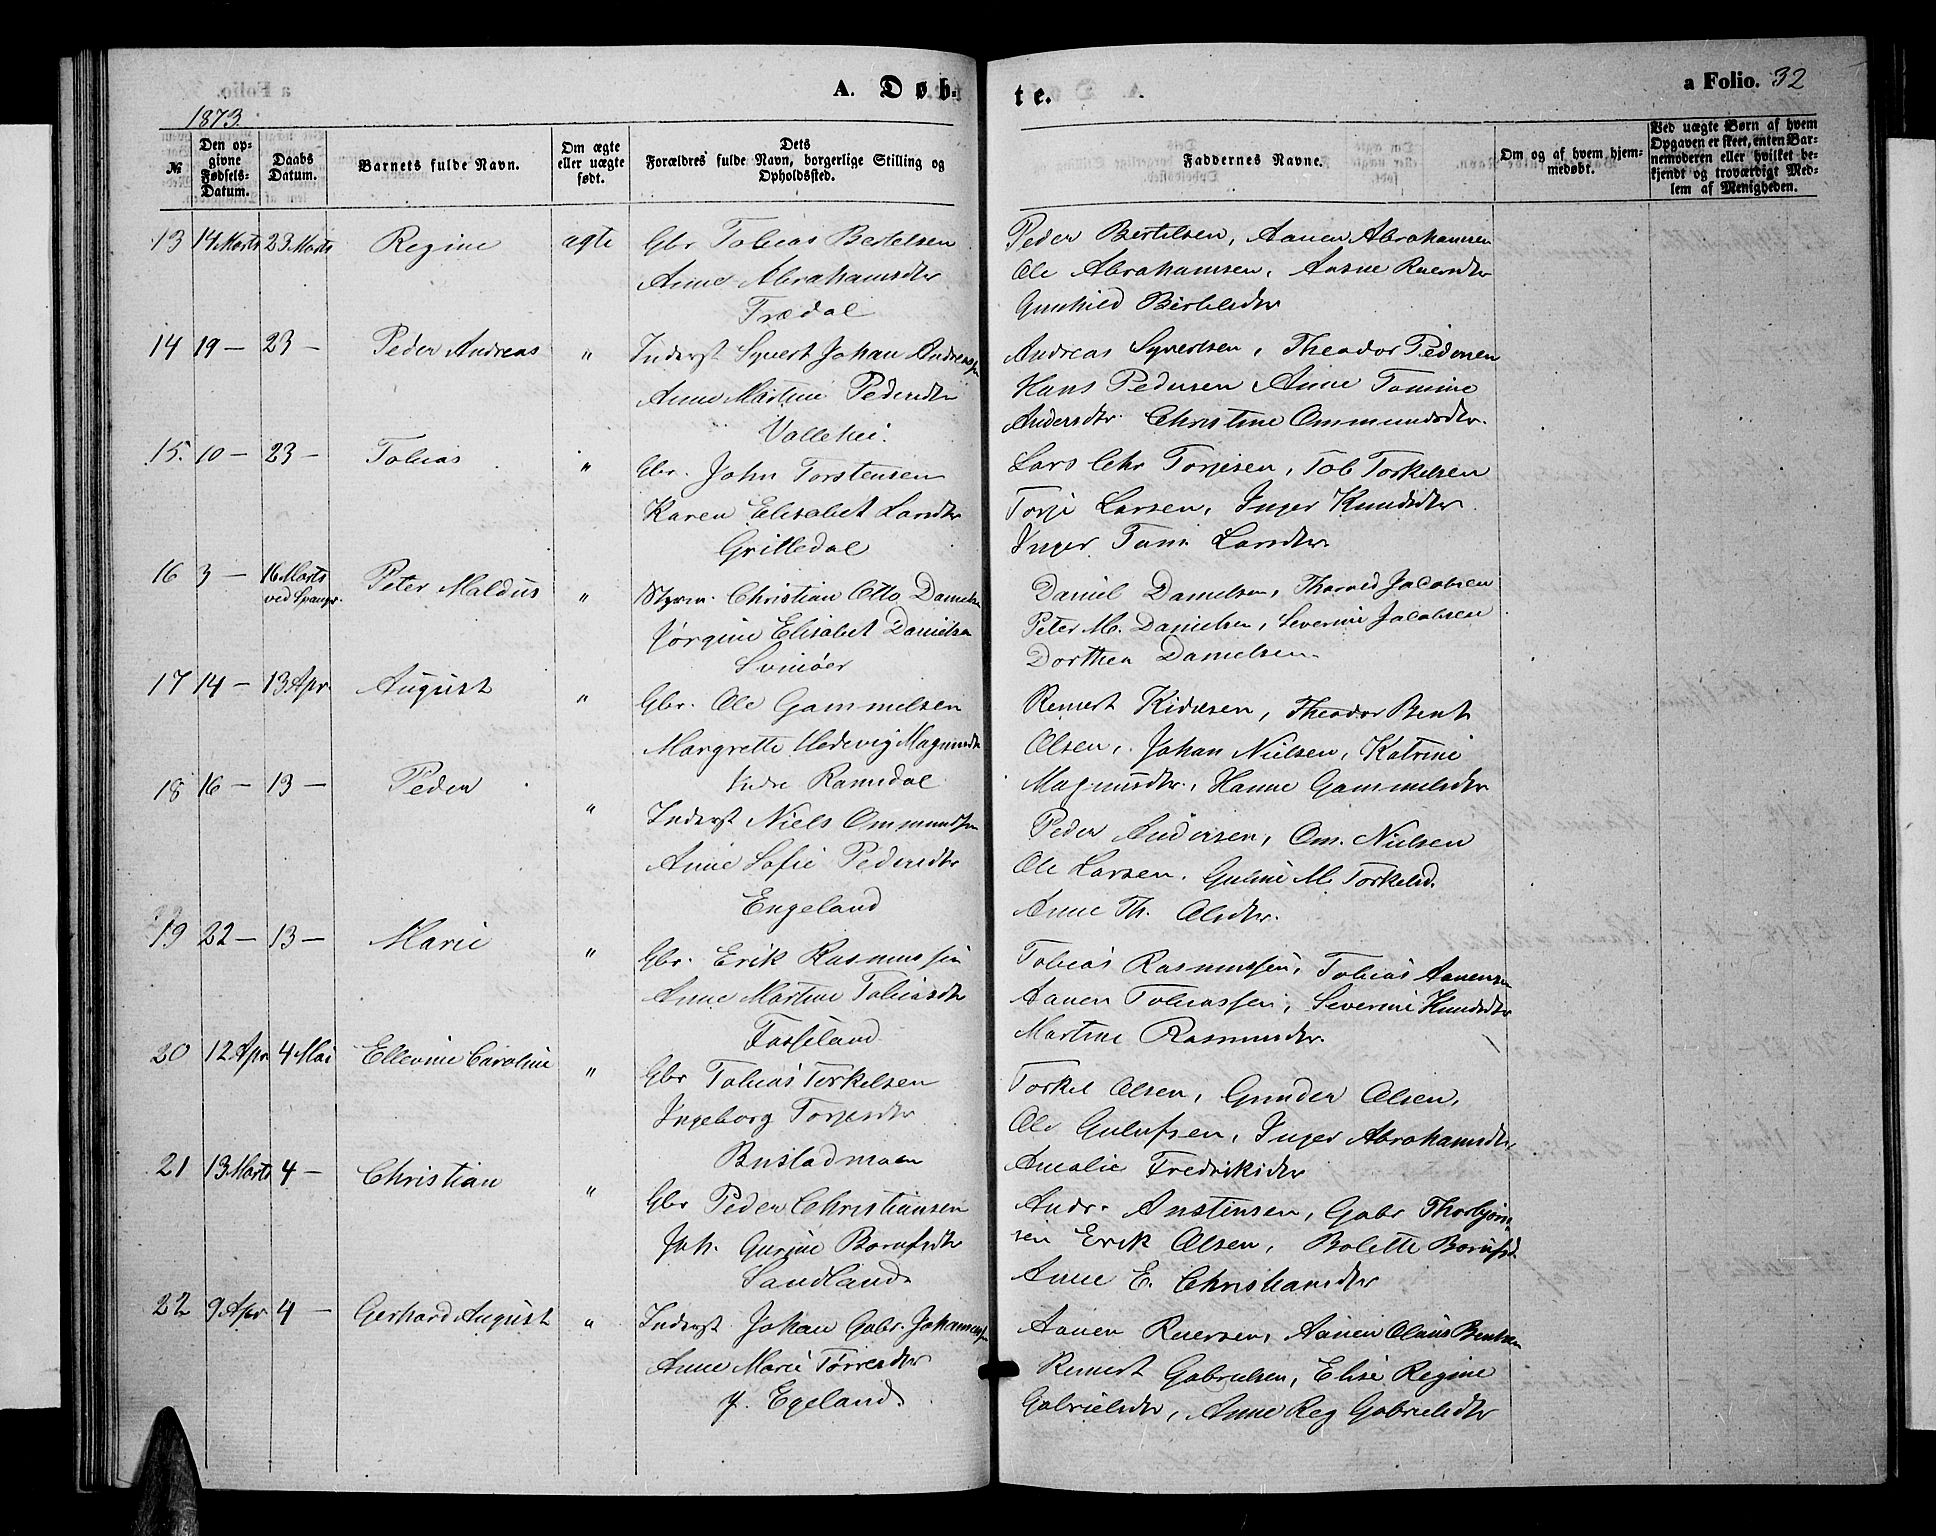 A. Døb-
te.
a Folio. 32
1873.
№
Den opgivne Fødsels-Datum.
Daabs Datum.
Barnets fulde Navn.
Om ægte eller uægte født.
Dets Forældres fulde Navn, borgerlige Stilling og Opholdssted.
Faddernes Navne.
Om og af hvem hjemmedøbt.
Ved uægte Børn af hvem Opgaven er skeet, enten Barnemoderen eller hvilket bekjendt og troværdigt Medlem af Menigheden.
13 14 Marts 23 Marts Regine ægte Gbr Tobias Bertelsen
Anne Abrahamsdtr
Trædal
Peder Bertelsen, Aanen Abrahamsen
Ole Abrahamsen, Aasne Reersdtr
Gunhild Bertelsdtr
14 19 — 23 — Peder Andreas " Inderst Syvert Johan Andreassen
Anne Martine Pedersdtr
Vallehei.
Andreas Syvertsen, Theodor Pedersen
Hans Pedersen Anne Tomine
Andersdtr. Christine Ommundsdtr.
15. 10 — 23 — Tobias " Gbr. John Torstensen
Karen Elisabet Larsdtr
Grilledal
Lars Chr Torjesen, Tob Torkelsen
Torje Larsen, Inger Knudsdtr.
Inger Tom. Larsdtr.
16 3 — 16 Marts ved Spanger. Peter Maldus " Styrm. Christian Otto Danielsen
Jørgine Elisabet Danielsen
Svinøer
Daniel Danielsen, Tharald Jacobsen
Peter M. Danielsen, Severine Jacobsen
Dorthea Danielsen.
17 14 — 13 Apr. August " Gbr. Ole Gammelsen
Margrette Hedevig Magnusdtr
Indre Ramsdal
Remert Kidesen, Theodor Bent
Olsen, Johan Nielsen, Katrine
Magnusdtr., Hanne Gammelsdtr
18 16 — 13 — Peder " Inderst Niels Ommundsen
Anne Sofie Pedersdtr
Engeland
Peder Andersen, Om. Nielsen
Ole Larsen, Guline M. Torkelsd.
Anne Th. Olsdtr.
19 22 — 13 — Marie " Gbr. Erik Rasmussen
Anne Martine Tobiasdtr
Fasseland
Tobias Rasmussen, Tobias Aanensen
Aanen Tobiassen, Severine Knudsdtr
Martine Rasmusdtr.
20 12 Apr 4 Mai Ellevine Caroline " Gbr Tobias Torkelsen
Ingeborg Torjesdtr
Bustadmoen
Torkel Olsen, Gunder Olsen,
Ole Gulufsen, Inger Abrahamsdtr,
Amalie Fredriksdtr
21 13 Marts 4 — Christian " Gbr Peder Christiansen
Joh. Gurine Bornfsdtr
Sandland
Andr. Anstensen, Gabr Thorbjørn
sen Erik Olsen, Bolette Bornfsd.
Anne E. Christiansdtr
22 9 Apr 4 — Gerhard August " Inderst. Johan Gabr. Johannessen
Anne Marie Tørresdtr
Y. Egeland
Aanen Reersen, Aanen Olaus Bentsen
Remert Gabrielsen, Elise Regine
Gabrielsdtr, Anne Reg Gabrielsdtr